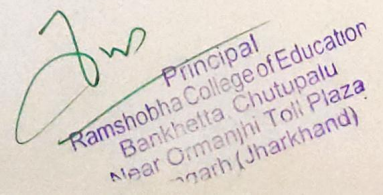 Principal
Ramshobha College of Education
Bankhetta Chutupalu
Near Ormanjhi Toll Plaza
(Jharkhand)